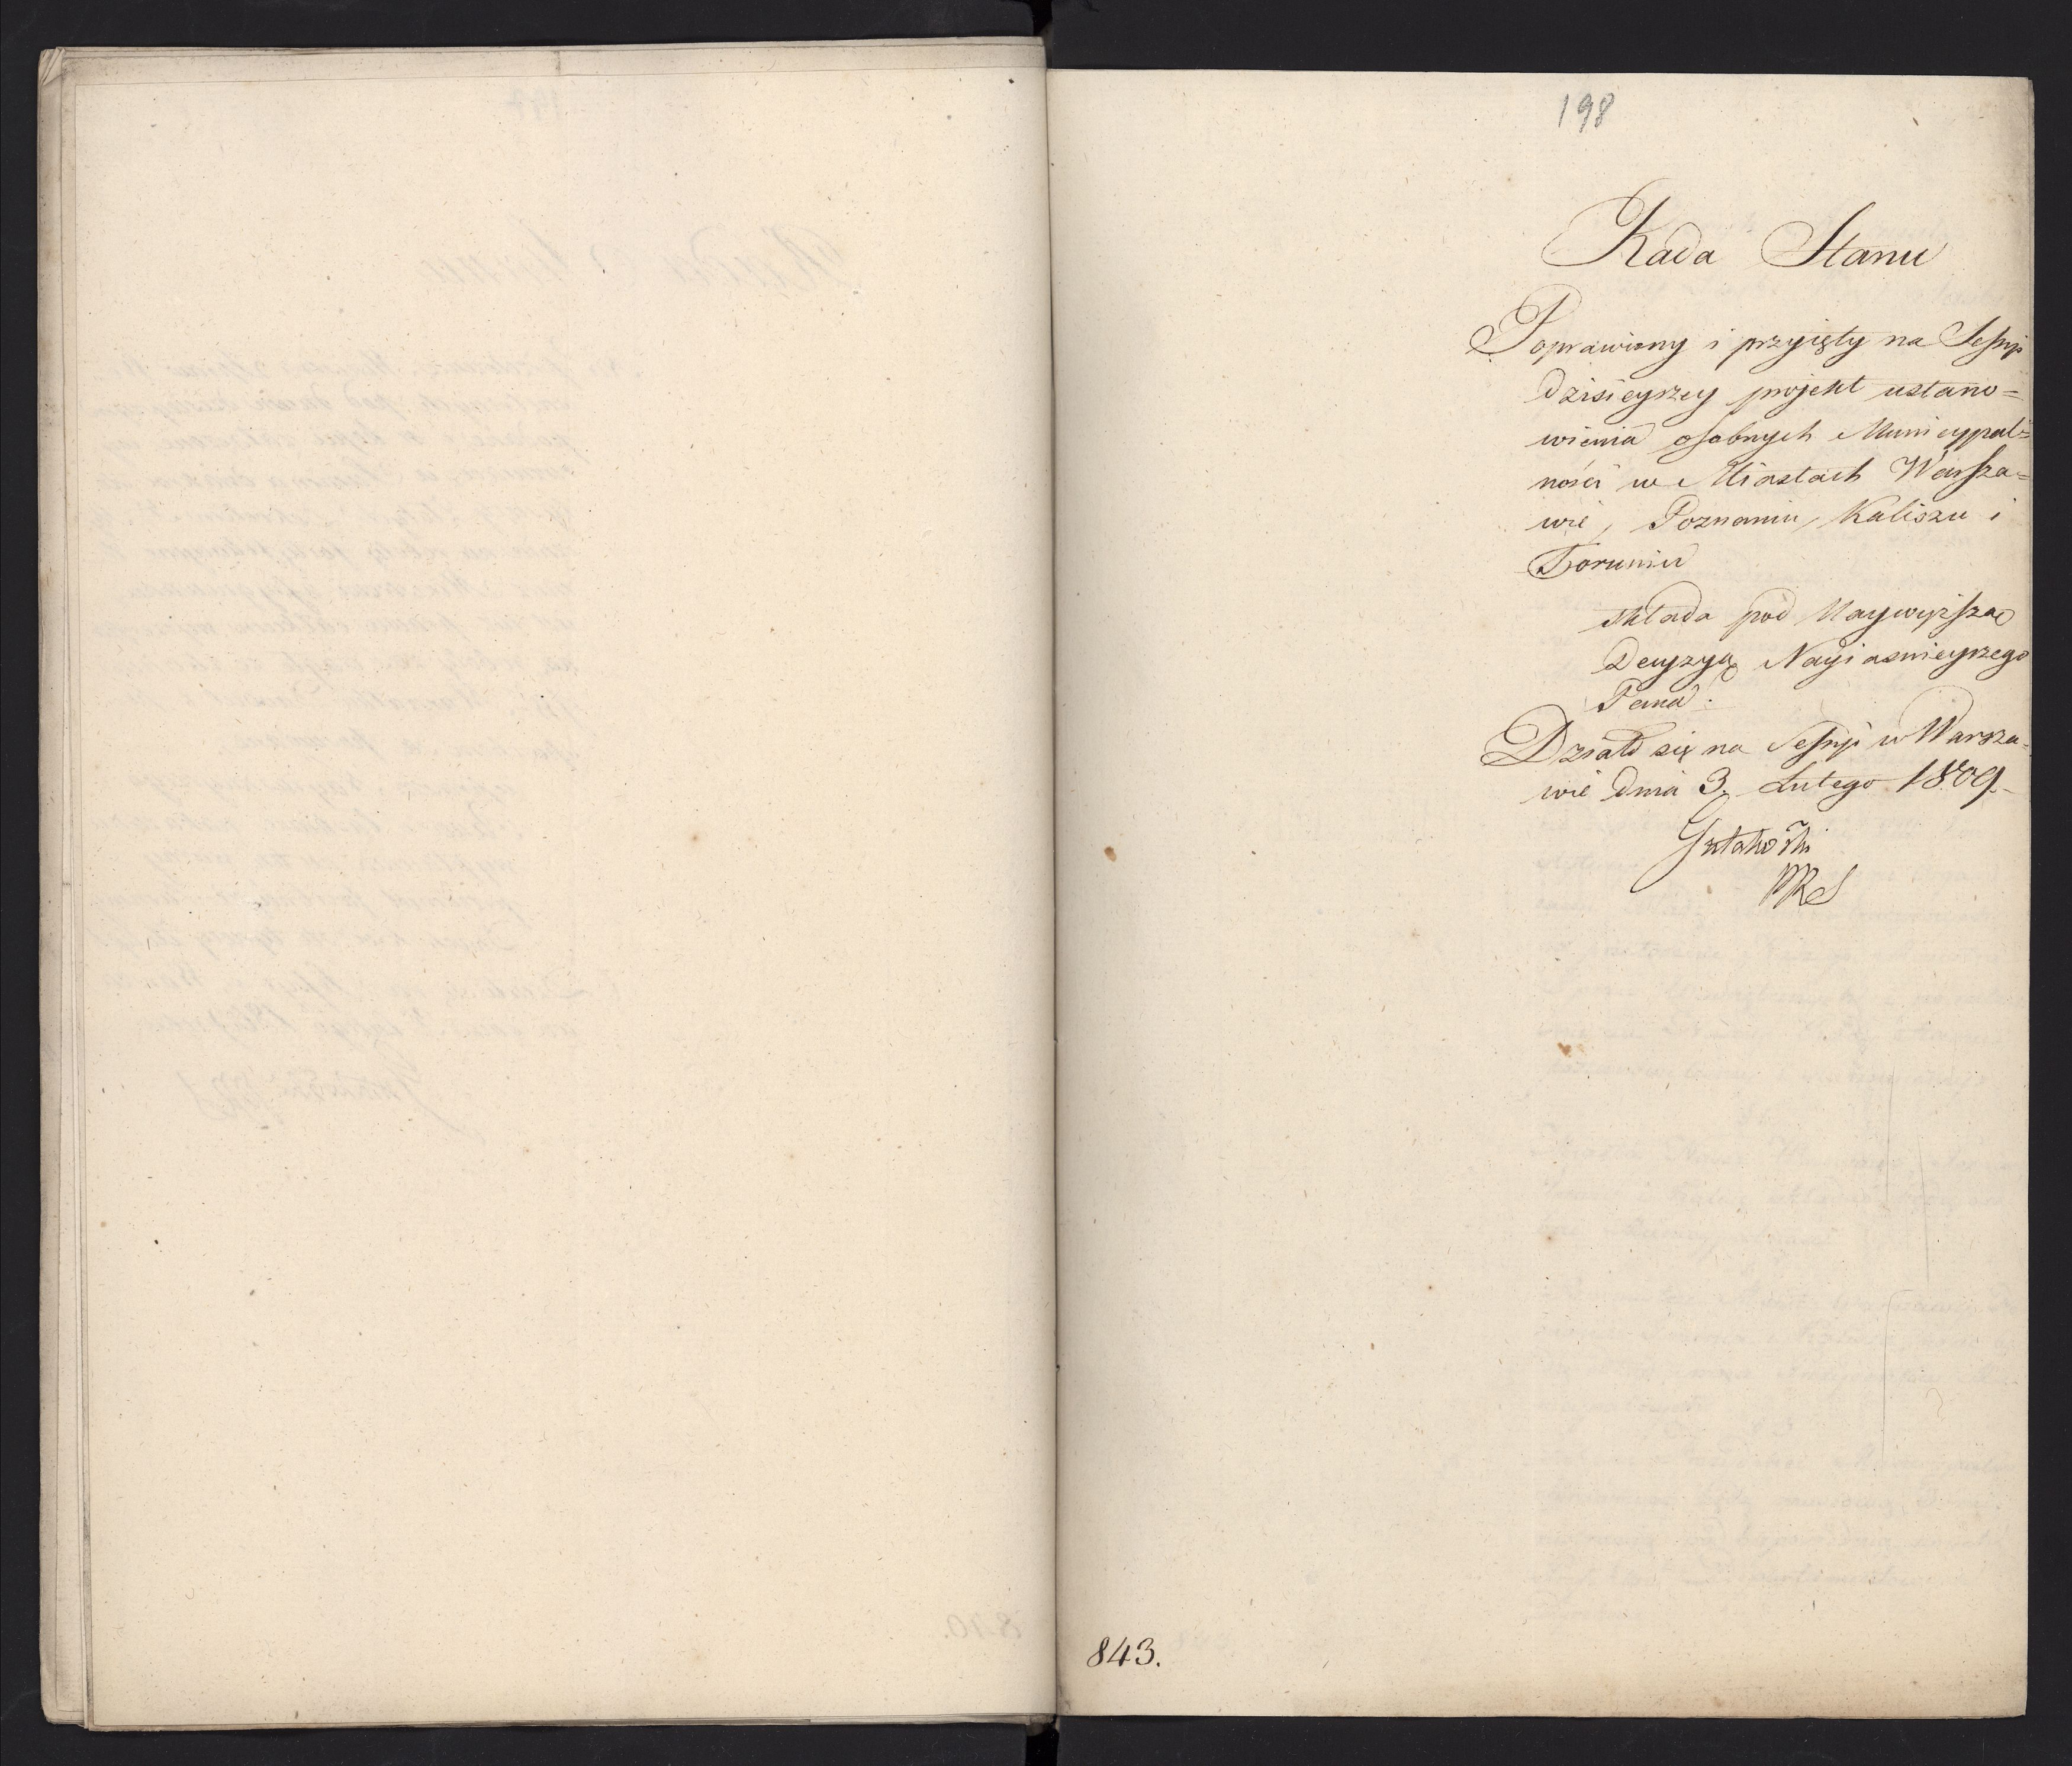 198
Rada Stanu
Poprawiony i przyięty na Sessyi
dzisieyszey projekt ustano=
wienia osobnych Municypal=
ności w Miastach Warsza=
wie, Poznaniu, Kaliszu i
Toruniu
składa pod Naywyższą
Decyzyą Nayiasnieyszego
Pana.
Działo się na Sessyi w Warsza=
wie dnia 3. Lutego 1809.
PRS
843.